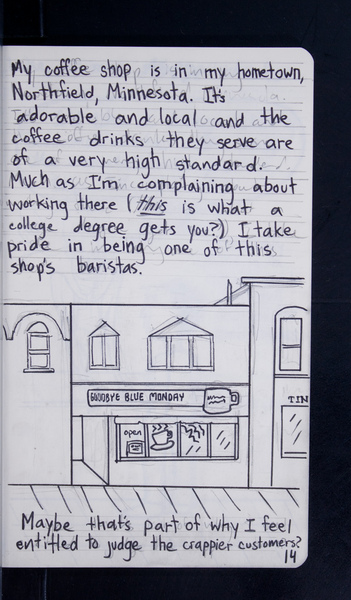 My coffee shop is in my hometown,
Northfield, Minnesota. It's
adorable and local and the
coffee drinks they serve are
of a very high standard.
Much as I'm complaining about
working there (this is what a
college degree gets you?) I take
pride in being one of this
shop's baristas.
GOODBYE BLUE MONDAY
TIN
open
Maybe that's part of why I feel
entitled to judge the crappier customers?
14